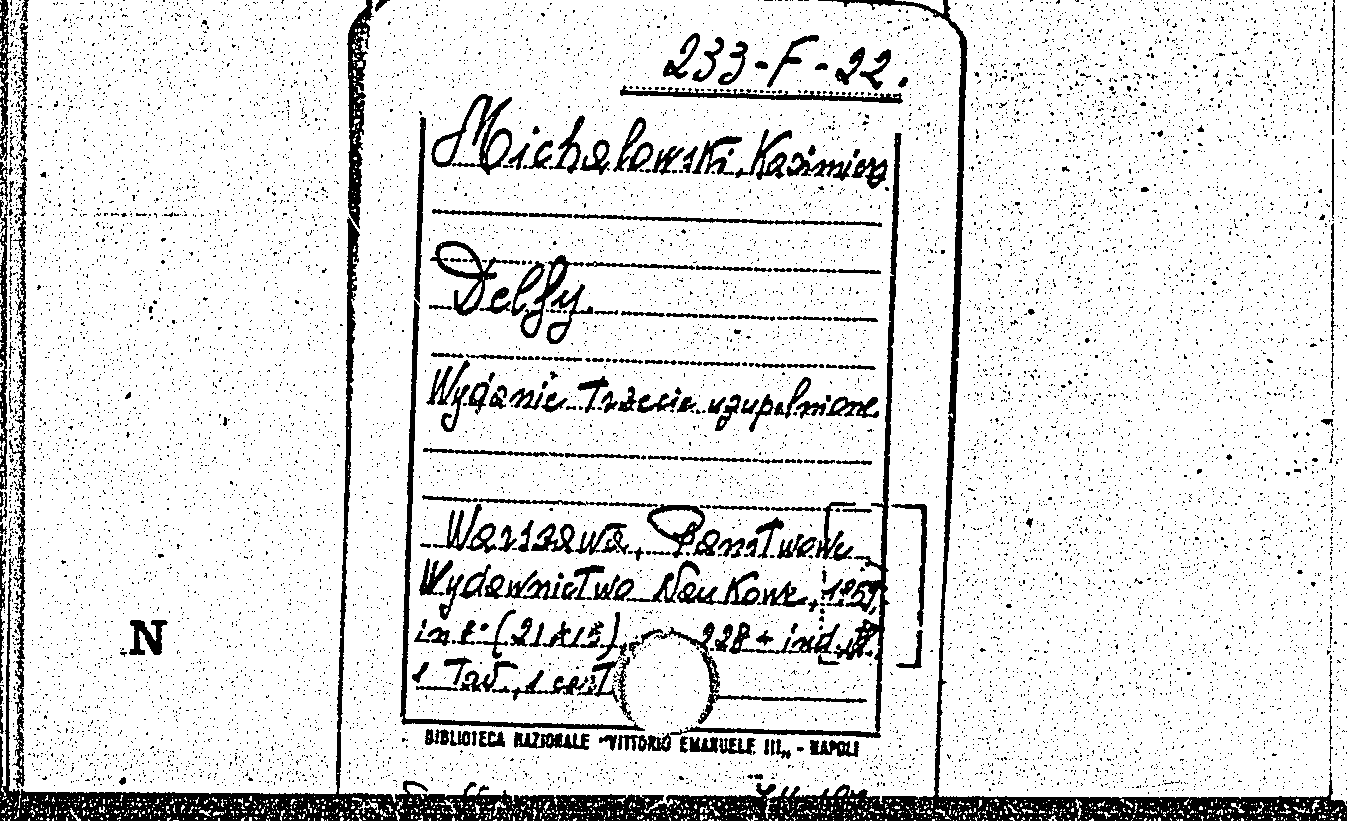 233-F-22.
Michalowski, Kazimierz
Delfy.
Wydanie Trzecie uzupelnione
Warszawa, Panstwowe
Wydawnictwo Naukowe, 1959,
in 8° (21x15), 228 + ind.
1 Tav., 1 cart
N
BIBLIOTECA NAZIONALE "VITTORIO EMANUELE III„ - NAPOLI